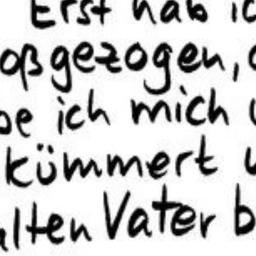 Erst hab ic
oßgezogen, 
be ich mich
kümmert
alten Vater b